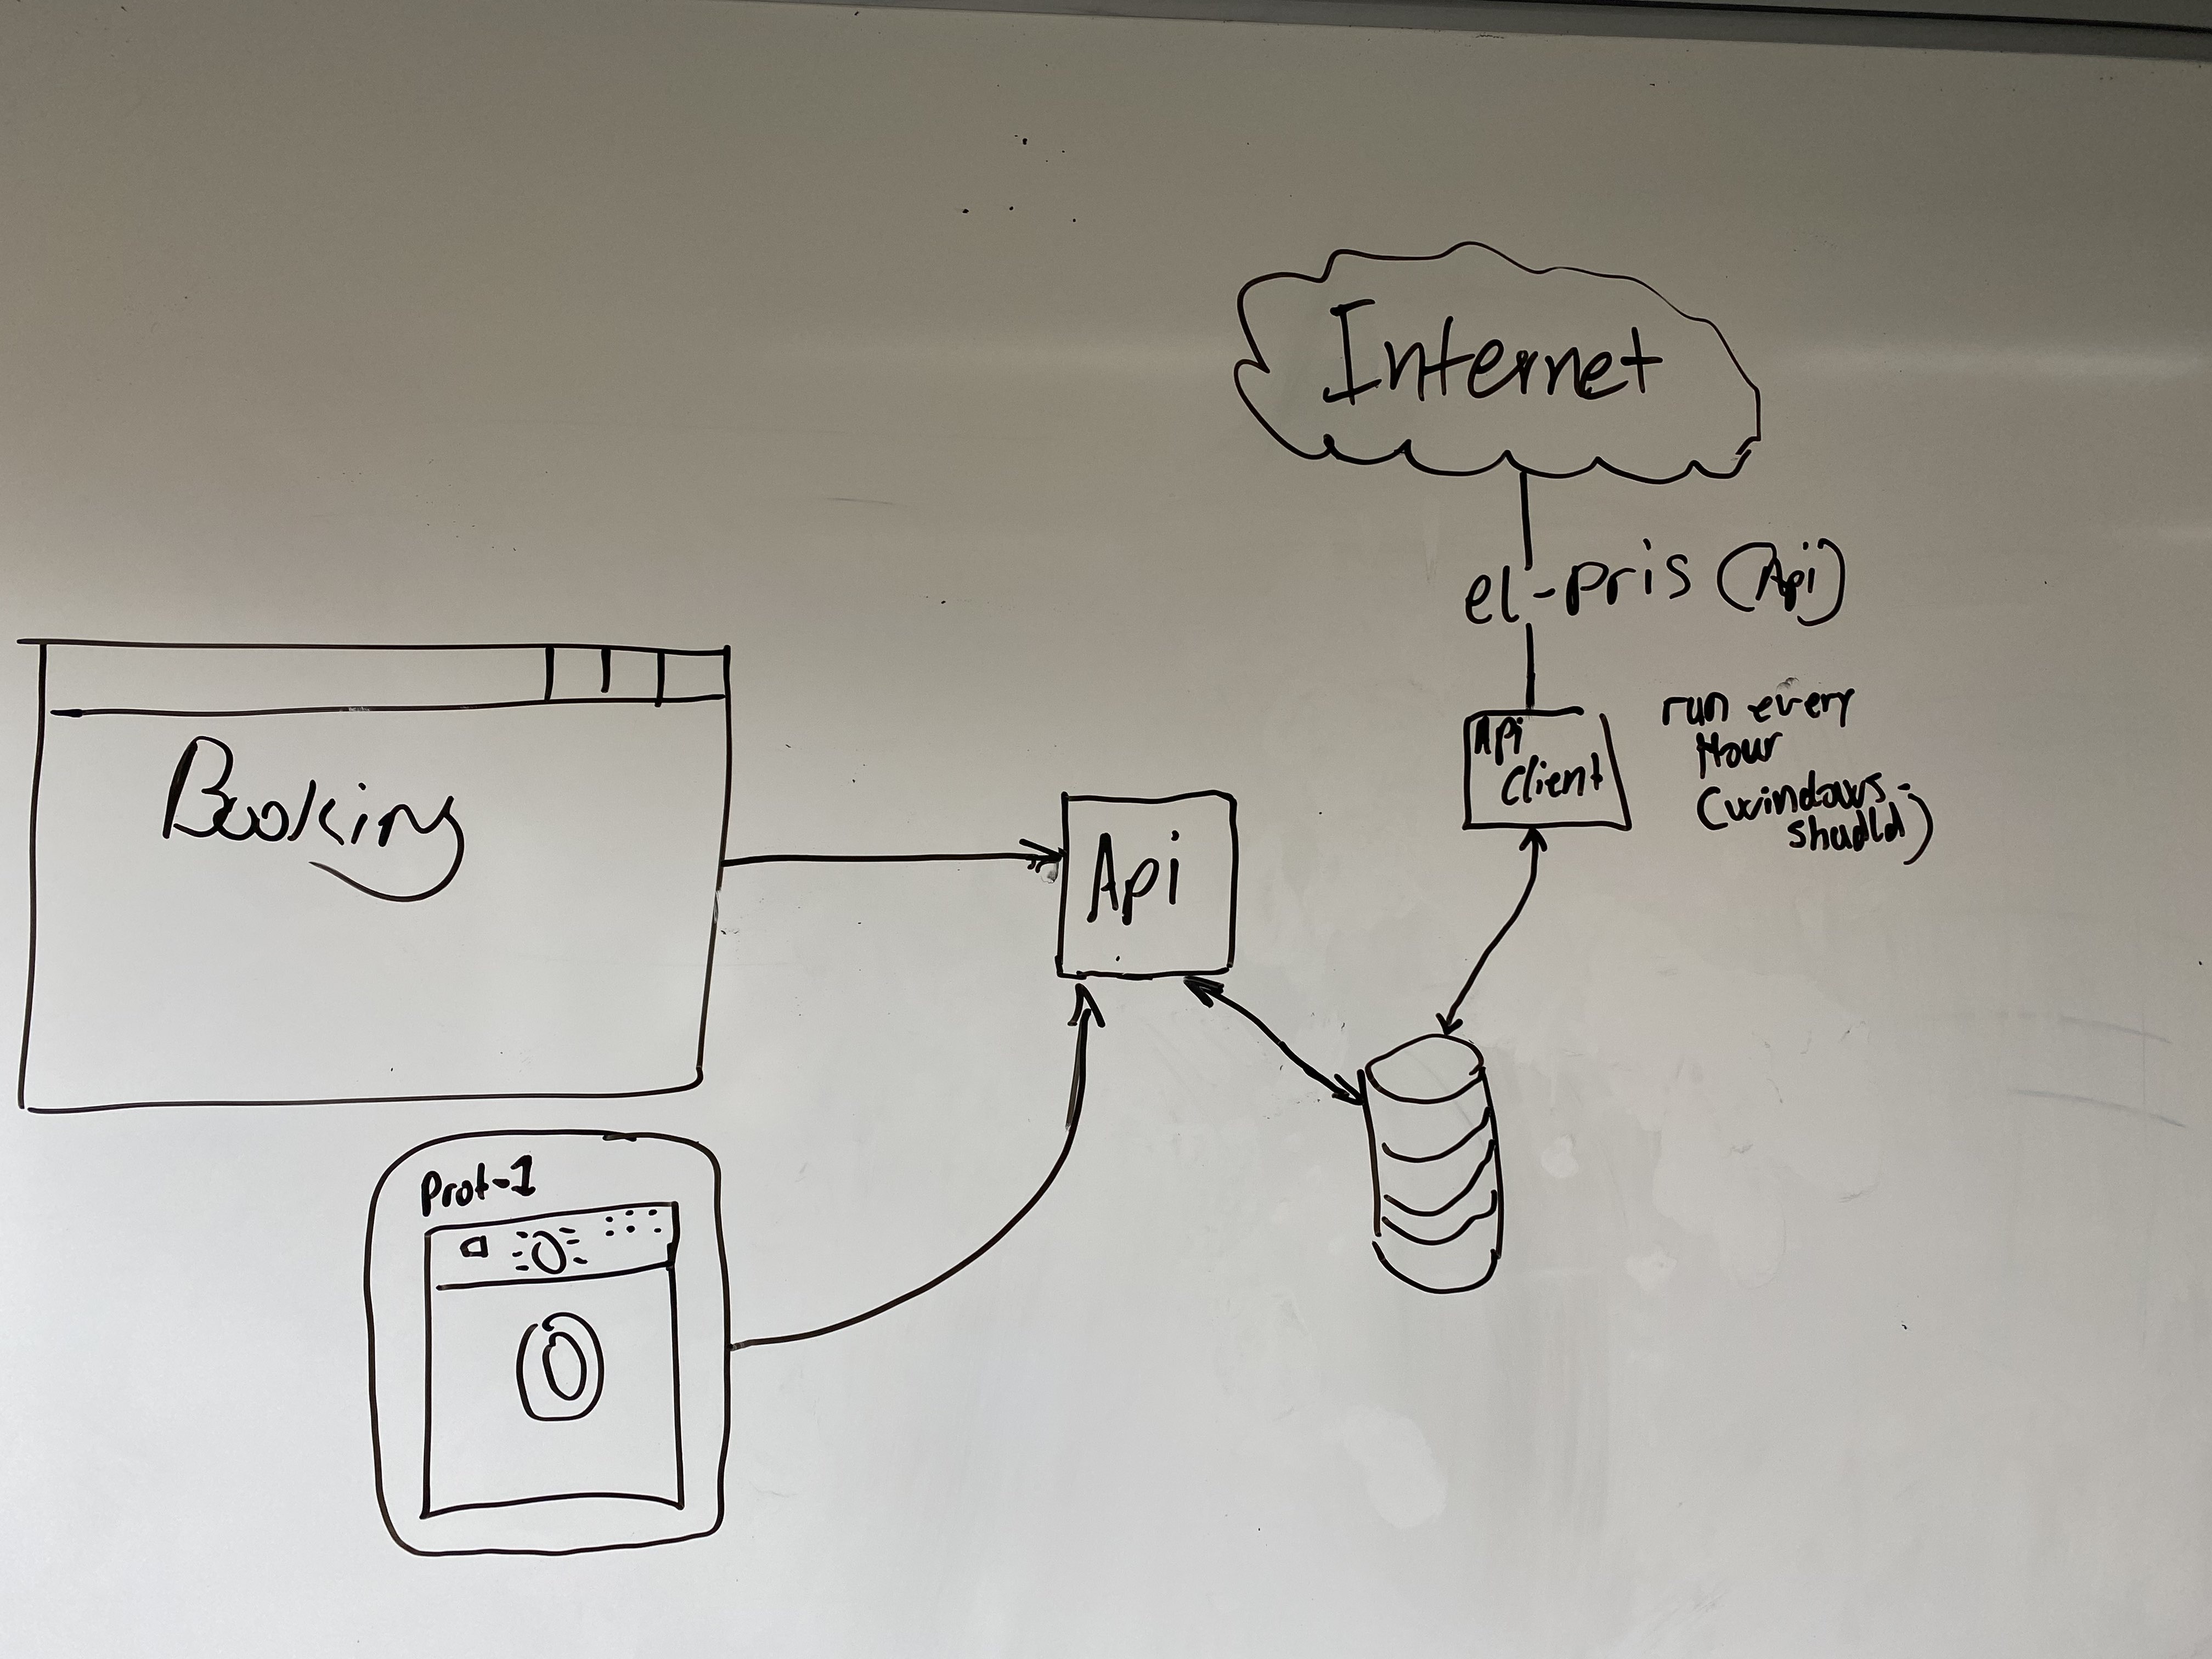 Internet
el-pris (Api)
Api
Client
run every
Hour
(windows-
shudld)
Booking
Api
Prot-1